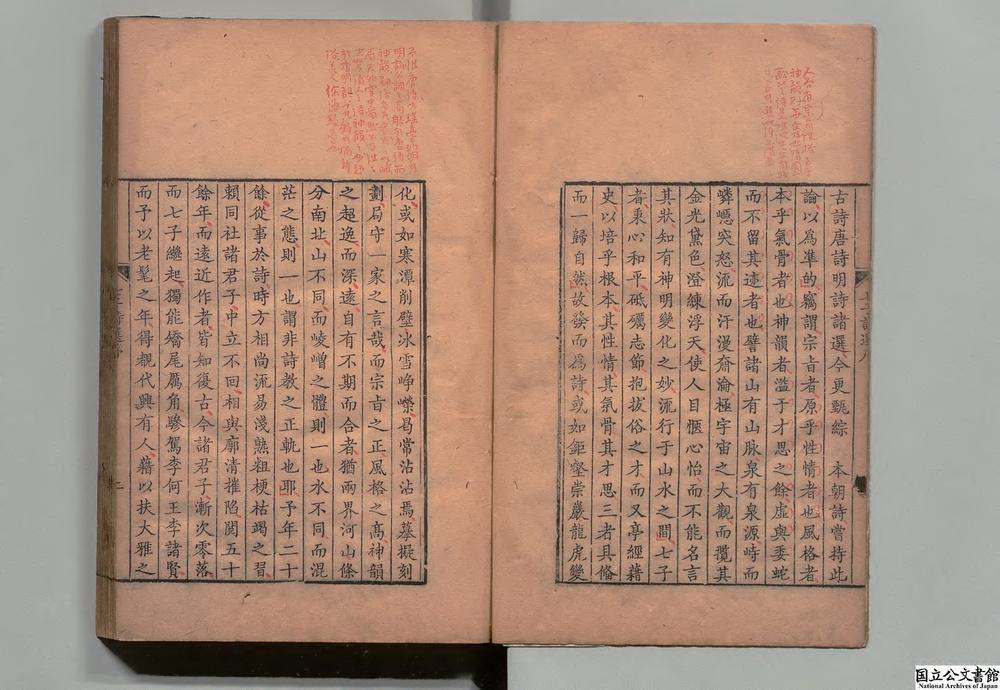 古詩唐詩明詩諸選今更甄綜 本朝詩嘗持此
論以爲準的竊謂宗旨者原乎性情者也風格者
本乎氣骨者也神韻者滥于才思之餘虛與委蛇
而不留其迹者也譬諸山有山脉泉有泉源峙而
嶙峗突怒流而汗漫奫淪極宇宙之大觀而攬其
金光黛色澄練浮天使人目愜心怡而不能名言
其狀知有神明變化之妙流行于山水之間七子
者秉心和平砥礪志節抱拔俗之才而又亭經藉
史以培乎根本其性情其氣骨其才思三者具備
而一歸自然故發而爲詩或如鉅壑崇巖龍虎變
化或如寒潭削壁冰雪崢嶸曷常沾沾焉摹擬刻
劃局守一家之言哉而宗旨之正風格之高神韻
之超逸而深遠自有不期而合者猶兩界河山條
分南北山不同而崚嶒之體則一也水不同而混
茫之態則一也謂非詩教之正軌也耶予年二十
餘從事於詩時方相尚流易淺熟粗梗枯竭之習
賴同社諸君子中立不回相與廓清摧陷閱五十
餘年而遠近作者皆知復古今諸君子漸次零落
而七子繼起獨能矯尾厲角驂駕李何王李諸賢
而予以老髦之年得覩代興有人藉以扶大雅之
國立公文書館
National Archives of Japan